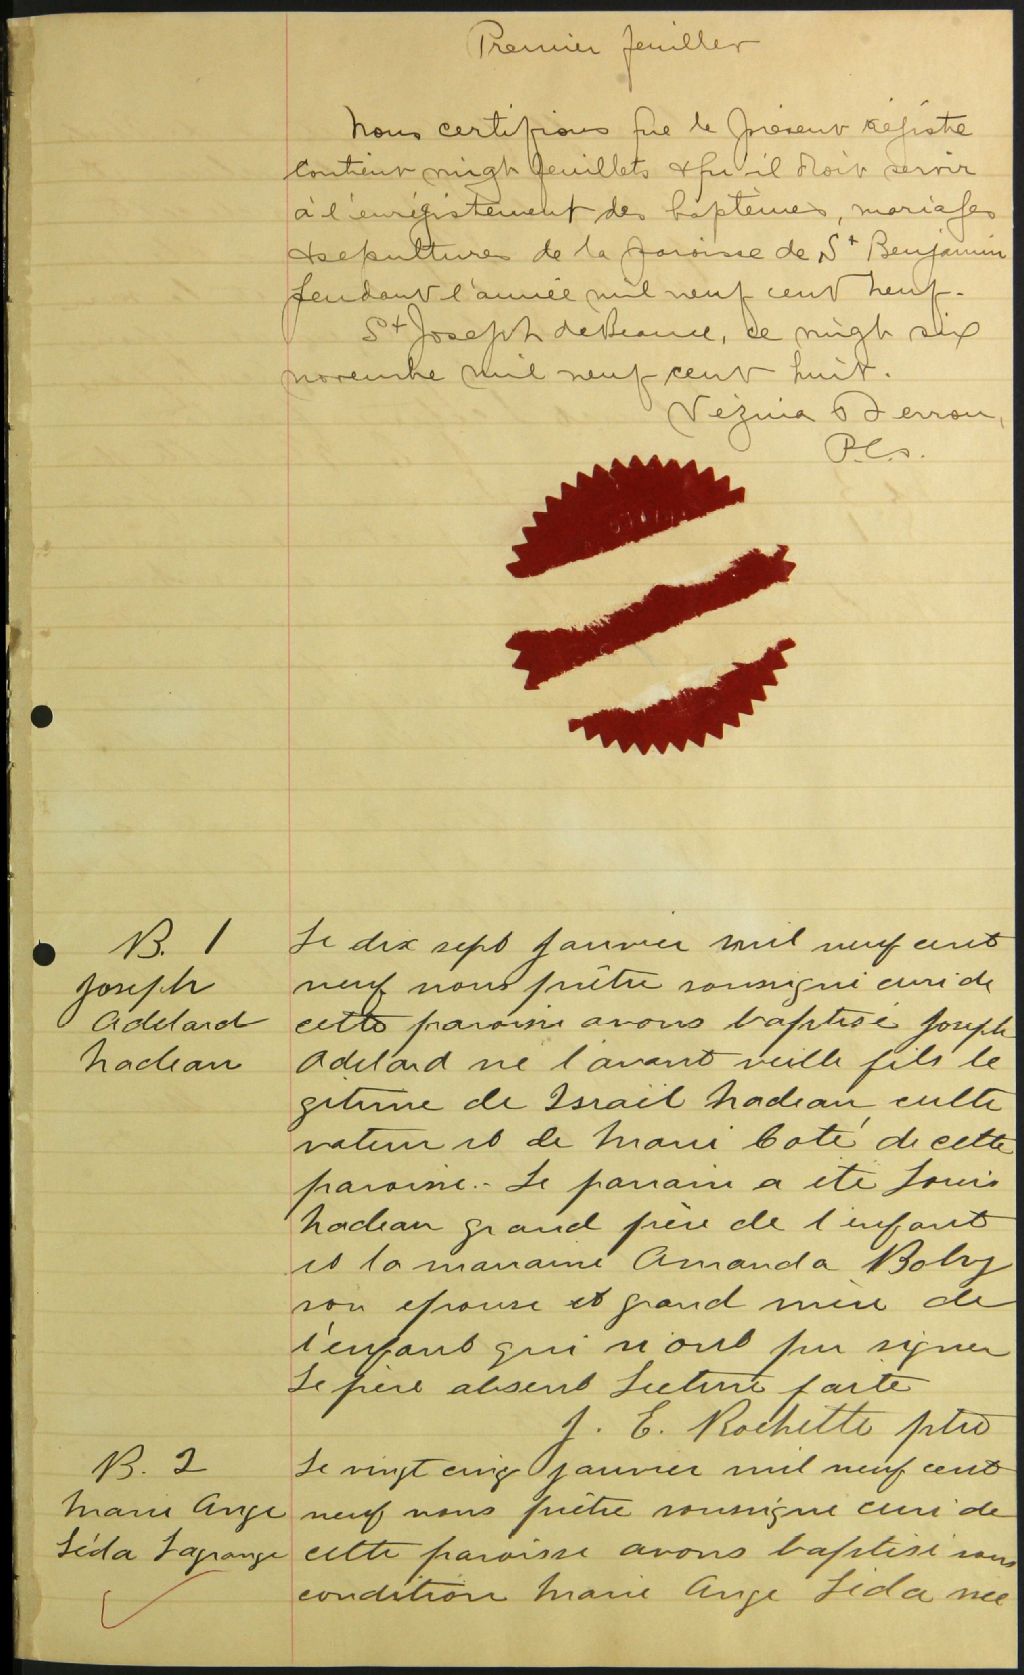 Premier feuillet
Nous certifions que le présent régistre
contient vingt feuillets & qu'il doit servir
à l'enrégistrement des baptèmes, mariages
& sepultures de la paroisse de St Benjamin
pendant l'année mil neuf cent neuf.
St Joseph de Beauce, ce vingt six
novembre mil neuf cent huit.
Vézina
P.C.S.
B. 1
Joseph
Adelard
Nadeau
Le dix sept janvier mil neuf cent
neuf nous prêtre soussigné curé de
cette paroisse avons baptisé Joseph
Adelard né l'avant veille fils le
gitime de Israël Nadeau culti
vateur et de Marie Coté de cette
paroisse.- Le parrain a été Louis
Nadeau grand père de l'enfant
et la marraine Amanda
son epouse et grand mère de
l'enfant qui n'ont pu signer
Le père absent Lecture faite
J. E. Rochette ptre
B. 2
Marie Ange
Léda Lagrange
Le vingt cinq janvier mil neuf cent
neuf nous prêtre soussigné curé de
cette paroisse avons baptisé sous
condition Marie Ange Léda née